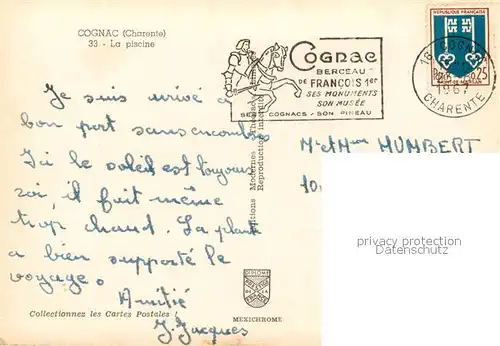 COGNAC (Charente)
33 - La piscine
Je suis arrivé à
bon port sans encombre
Ici le soleil est toujours
roi, il fait même
trop chaud. La plante
a bien supporté le
voyage.
Amitié
J. Jacques
Collectionnez les Cartes Postales !
MEXICHROME
Reproduction interdite
COGNAC
BERCEAU
DE FRANÇOIS 1er
SES MONUMENTS
SON MUSÉE
SES COGNACS - SON PINEAU
RÉPUBLIQUE FRANÇAISE
0,25
MONT-DE-MARSAN
16 COGNAC
1967
CHARENTE
Mr et Mme HUMBERT
privacy protection
Datenschutz